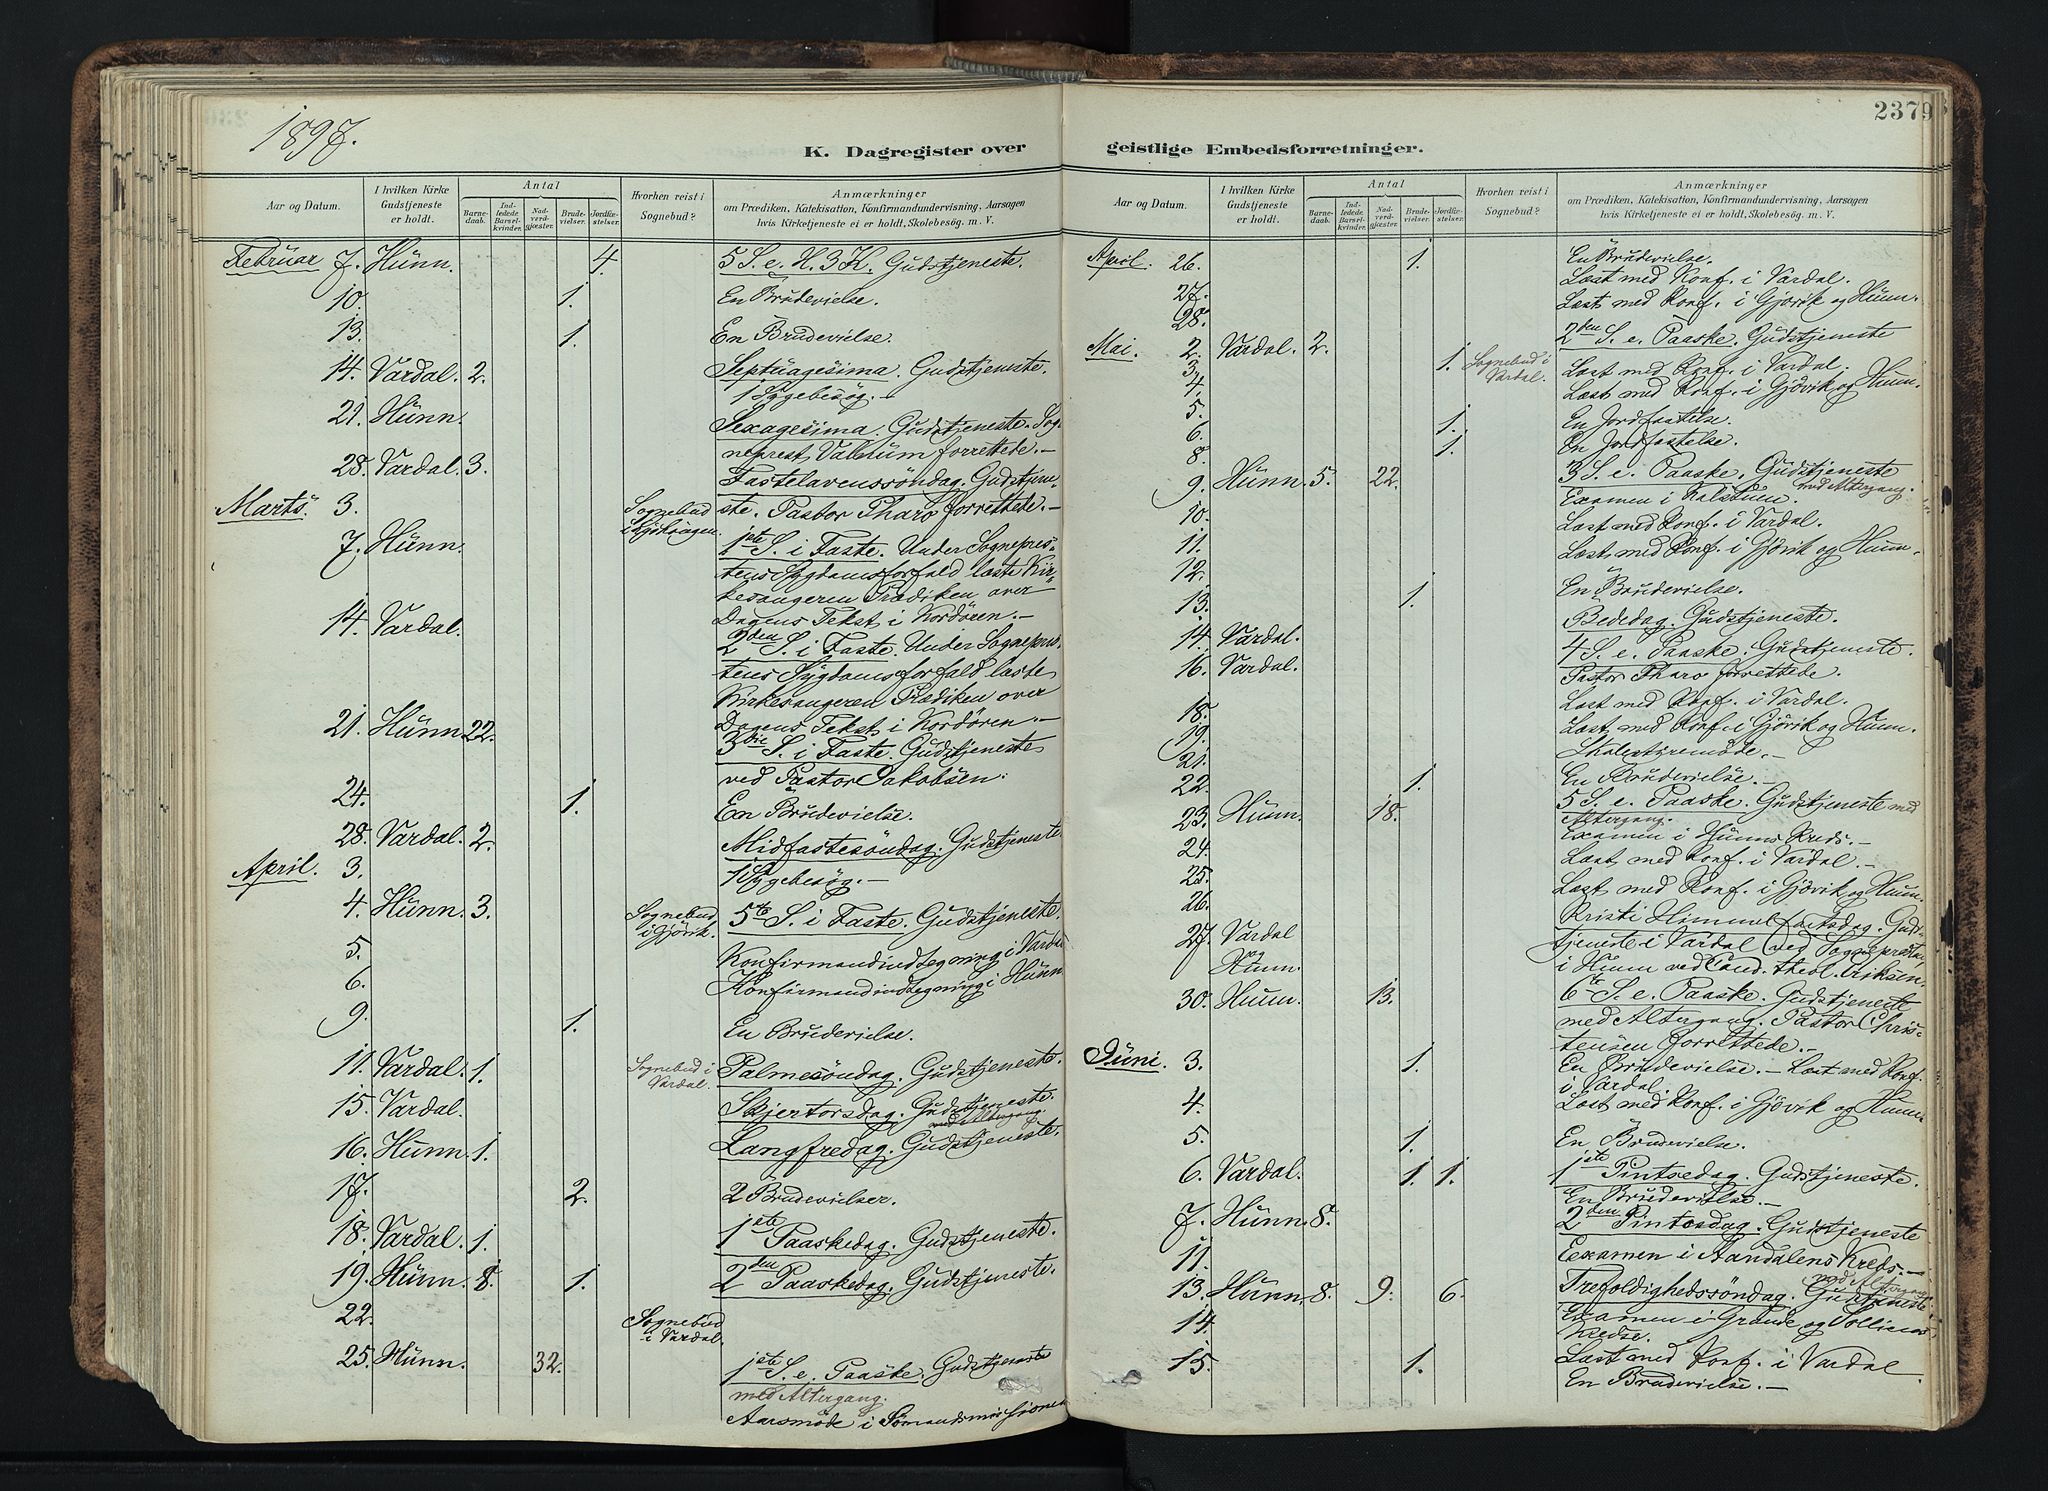 1897.
K. Dagregister over
Aar og Datum.
I hvilken Kirke Gudstjeneste er holdt.
Antal
Barnedaab.
Indledede Barselkvinder.
Nadverdgjæster.
Brudevielser.
Jordfæstelser.
Hvorhen reist i Sognebud?
Anmærkninger
om Prædiken, Katekisation, Konfirmandundervisning, Aarsagen
hvis Kirketjeneste ei er holdt, Skolebesøg. m. V.
Februar 7. Hunn. 4. 5 S. e. H. 3 K. Gudstjeneste.
10. 1. En Brudevielse.
13. 1. En Brudevielse.
14. Vardal. 2. Septuagesima. Gudstjeneste.
1 Sygebesøg. -
21. Hunn. Sexagesima. Gudstjeneste. Sog-
neprest forrettede. -
28. Vardal. 3. Fastelavenssöndag. Gudstjene-
Marts. 3. Sognebud ste. Pastor Tharo forrettede. -
7. Hunn. 1ste S. i Faste. Under Sognepres-
tens Sygdomsforfald læste Kir-
kesangeren Prædiken over
14. Vardal. Dagens Tekst i Kordören. -
2den S. i Faste. Under Sognepres-
tens Sygdomsforfald læste
Kirkesangeren Prædiken over
21. Hunn 22. Dagens Tekst i Kordören. -
3die S. i Faste. Gudstjeneste
ved Pastor Jakobsen.
24. 1. En Brudevielse.
28. Vardal. 2. Midfastesöndag. Gudstjeneste
April. 3. 1 Sygebesög. -
4. Hunn. 3. Sognebud i Gjövik. 5te S. i Faste. Gudstjeneste.
5. Konfirmandindtegning i Vardal
6. Konfirmandindtegning i Hunn
9. 1. En Brudevielse.
11. Vardal. 1. Sognebud i Vardal. Palmesöndag. Gudstjeneste.
15. Vardal. Skjertorsdag. Gudstjeneste.
med Altergang.
16. Hunn. 1. Langfredag. Gudstjeneste.
17. 2. 2 Brudevielser.
18. Vardal. 1. 1ste Paaskedag. Gudstjeneste.
19. Hunn. 8. 1. 2den Paaskedag. Gudstjeneste.
22. Sognebud i Vardal.
25. Hunn. 32. 1ste S. e. Paaske. Gudstjeneste
med Altergang.
Aarsmöde i
2379
geistlige Embedsforretninger.
Aar og Datum.
I hvilken Kirke Gudstjeneste er holdt.
Antal
Barnedaab.
Indledede Barselkvinder.
Nadverdgjæster.
Brudevielser.
Jordfæstelser.
Hvorhen reist i Sognebud?
Anmærkninger
om Prædiken, Katekisation, Konfirmandundervisning, Aarsagen
hvis Kirketjeneste ei er holdt, Skolebesøg. m. V.
April. 26. 1. En Brudevielse.
Læst med Konf. i Vardal.
27. Læst med Konf. i Gjövik og Hunn.
28.
Mai. 2. Vardal. 2. 2den S. e. Paaske. Gudstjeneste
3. 1. Sognebud i Vardal. Læst med Konf. i Vardal.
4. Læst med Konf. i Gjövik og Hunn.
5. En Jordfæstelse.
6. 1. En Jordfæstelse.
8. 1.
9. Hunn. 5. 22. 3 S. e. Paaske. Gudstjeneste
med Altergang.
Examen i
10. Læst med Konf. i Vardal.
11. Læst med Konf. i Gjövik og Hunn.
12.
13. 1. En Brudevielse.
Bededag. Gudstjeneste.
14. Vardal. 4 S. e. Paaske. Gudstjeneste.
16. Vardal. Pastor Tharo forrettede.
18. Læst med Konf. i Vardal.
19. Læst med Konf. i Gjövik og Hunn.
21. Skolestyremöde. -
22. 1. En Brudevielse. -
23. Hunn. 18. 5 S. e. Paaske. Gudstjeneste med
Altergang.
24. Examen i Hunns Kreds. -
25. Læst med Konf. i Vardal. -
26. Læst med Konf. i Gjövik og Hunn
27. Vardal Kristi Himmelfartsdag. Guds-
og Hunn. tjeneste i Vardal ved Sognepresten
i Hunn ved Cand. theol. Eriksen.
30. Hunn. 13. 6te S. e. Paaske. Gudstjeneste
med Altergang. Pastor Chris-
tensen forrettede. -
Juni. 3. 1. En Brudevielse. - Læst med Konf.
i Vardal.
4. Læst med Konf. i Gjövik og Hunn
5. 1. En Brudevielse.
6. Vardal. 1. 1. 1ste Pintsedag. Gudstjeneste.
En Brudevielse. -
7. Hunn. 8. 2den Pintsedag. Gudstjeneste
11. Eexamen i Aandalens Kreds. -
13. Hunn. 8. 9. 6. Trefoldighedssöndag. Gudstjeneste
med Altergang.
14. Examen i Grande og
Kredse.
15. 1. Læst med Konf. i Vardal.
En Brudevielse. -